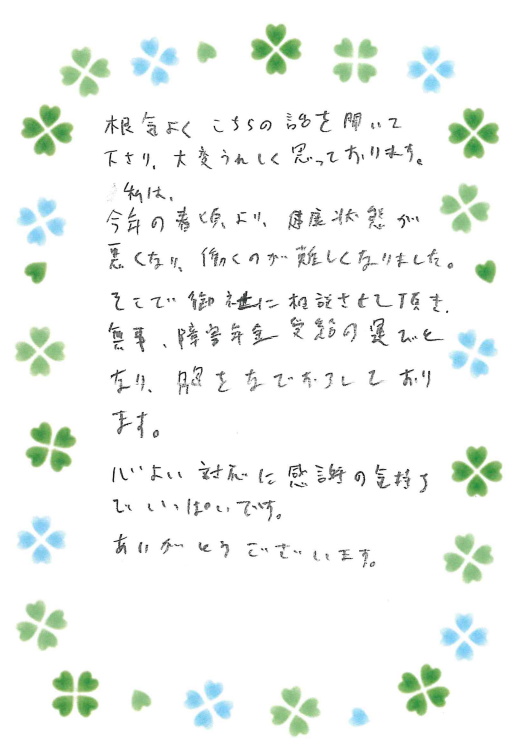 根気よくこちらの話を聞いて
下さり、大変うれしく思っております。
私は、
今年の春頃より、健康状態が
悪くなり、働くのが難しくなりました。
そこで御社に相談させて頂き、
無事、障害年金受給の運びと
なり、胸をなでおろしており
ます。
心よい対応に感謝の気持ち
でいっぱいです。
ありがとうございます。